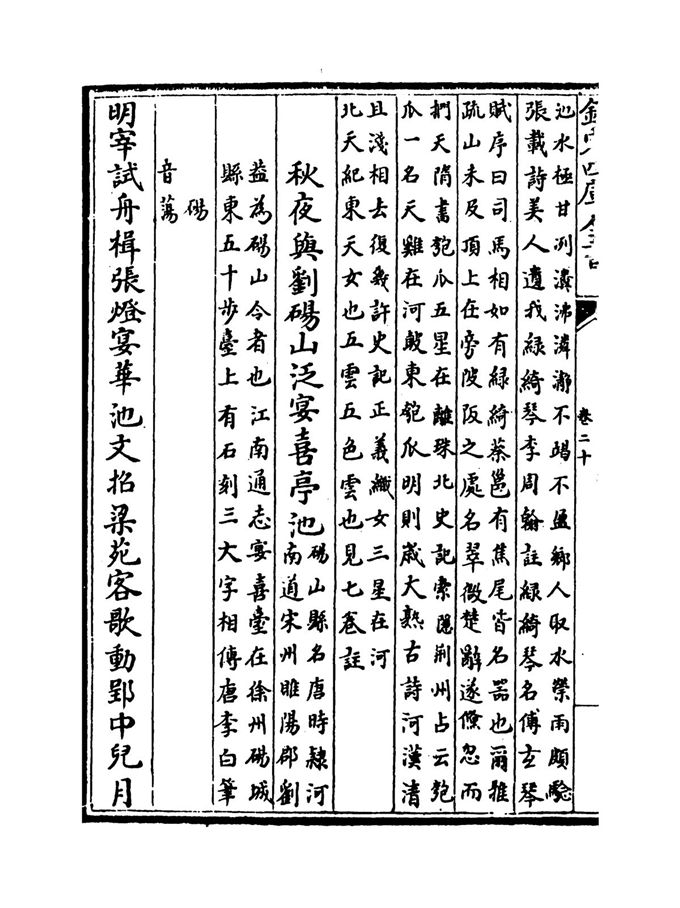 欽定四庫全書
卷二十
水極甘冽瀵沸潾不竭不溢鄉人取水禜雨頗驗
張載詩美人遺我綠綺琴李周翰註綠綺琴名傅玄琴
賦序曰司馬相如有綠綺蔡邕有焦尾皆名器也爾雅
疏山未及頂上在旁陂阪之處名翠微楚辭遂儵忽而
捫天隋書匏瓜五星在離珠北史記索隱荆州占云匏
瓜一名天雞在河鼓東匏瓜明則歲大熟古詩河漢清
且淺相去復幾許史記正義織女三星在河
北天紀東天女也五雲五色雲也見七卷註
秋夜與劉碭山泛宴喜亭池
碭山縣名唐時隷河
南道宋州睢陽郡劉
益為碭山令者也江南通志宴喜臺在徐州碭城
縣東五十步臺上有石刻三大字相傳唐李白筆
碭
音蕩
明宰試舟楫張燈宴華池文招梁苑客歌動郢中兒月